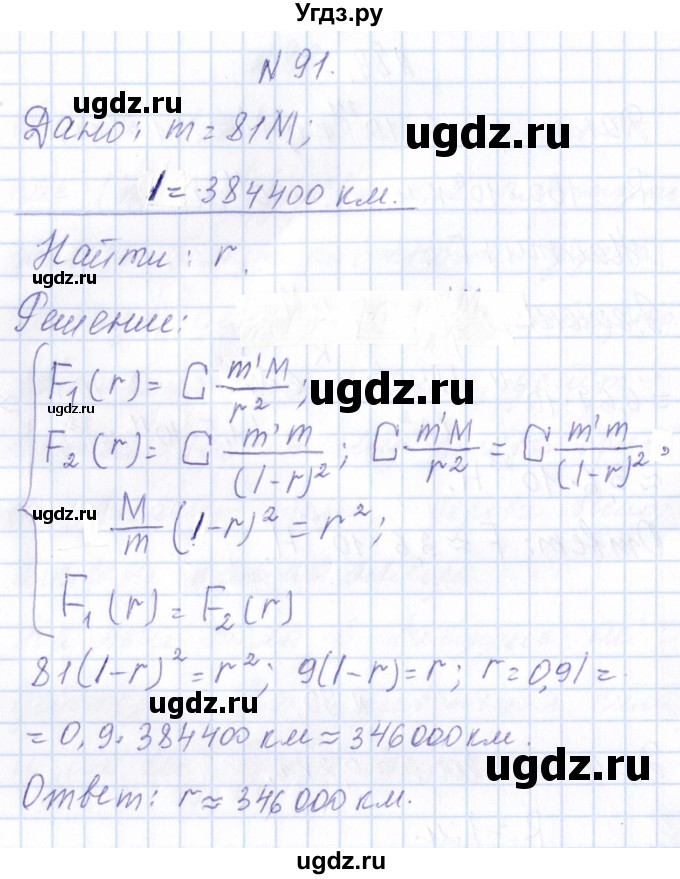 Угдз.ру
N 91.
ugdz.ru
Дано: m = 81M;
ugdz.ru
l = 384400 км.
Найти: r.
ugdz.ru
Решение:
F₁(r) = G m'M/r²;
ugdz.ru
ugdz.ru
F₂(r) = G m'm/(l-r)²; G m'M/r² = G m'm/(l-r)²;
ugdz.ru
M/m (l-r)² = r²;
F₁(r) = F₂(r)
81(l-r)² = r²; 9(l-r) = r; r = 0,9l =
ugdz.ru
= 0,9· 384400 км ≈ 346000 км.
ugdz.ru
Ответ: r ≈ 346 000 км.
ugdz.ru
ugdz.ru